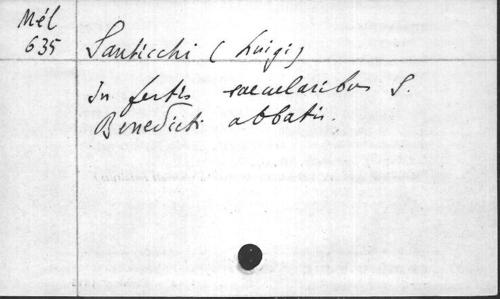 Mél
635
Santicchi (Luigi)
In festis saecularibus S.
Benedicti abbatis.